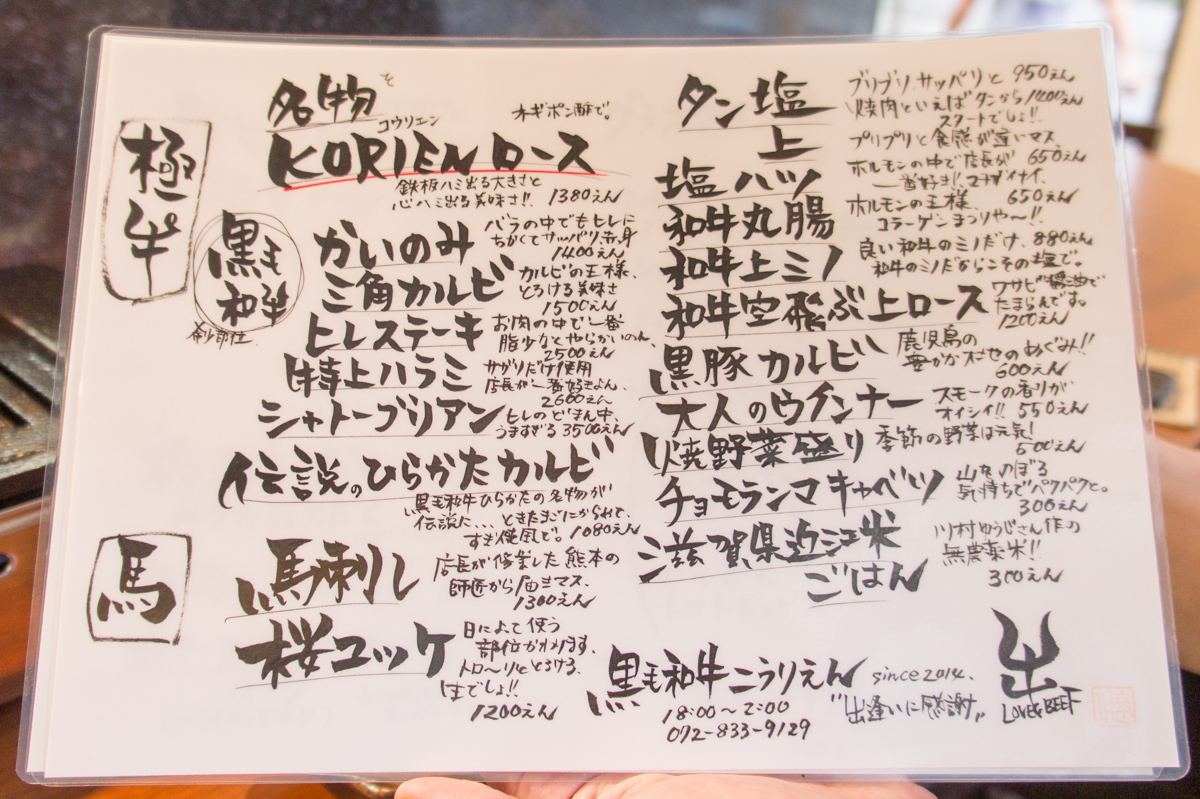 極牛
名物
コウリエン
KORIENロース
ネギポン酢で。
鉄板ハミ出る大きさと
心ハミ出る美味さ!! 1380えん
黒毛
和牛
かいのみ
バラの中でもヒレに
ちかくてサッパリ赤身
1400えん
三角カルビ
カルビの王様、
とろける美味さ
1500えん
ヒレステーキ
お肉の中で一番
脂少なくやらかいのん、
2500えん
特上ハラミ
サガリだけ使用
店長が一番好きよん、
2600えん
シャトーブリアン
ヒレのどまん中、
うますぎる3500えん
伝説のひらかたカルビ
黒毛和牛ひらかたの名物が
伝説に... ときたまごにからめて、
すき焼風で。1080えん
馬
馬刺し
店長が修業した熊本の
師匠から届きマス、
1300えん
桜ユッケ
日によって使う
部位かわります、
トロ〜リととろける、
生でしょ!!
1200えん
タン塩
ブリブリ、サッパリと 950えん
上
焼肉といえばタンから1400えん
スタートでしょ!!
塩ハツ
プリプリと食感が違いマス、
ホルモンの中で店長が 650えん
一番好き!!マチガイナイ、
和牛丸腸
ホルモンの王様、 650えん
コラーゲンまつりや〜!!
和牛上ミノ
良い和牛のミノだけ、880えん
和牛のミノだからこその塩で。
和牛空飛ぶ上ロース
ワサビ醤油で
たまらんです。
1200えん
黒豚カルビ
鹿児島の
豊かな大地のめぐみ!!
600えん
大人のウインナー
スモークの香りが
オイシイ!! 550えん
焼野菜盛り
季節の野菜は元気!
500えん
チョモランマキャベツ
山をのぼる
気持ちでパクパクと。
300えん
滋賀県近江米
ごはん
川村ゆうじさん作の
無農薬米!!
300えん
黒毛和牛こうりえん
since 2014.
18:00〜2:00
072-833-9129
"出逢いに感謝"
出
LOVE&BEEF